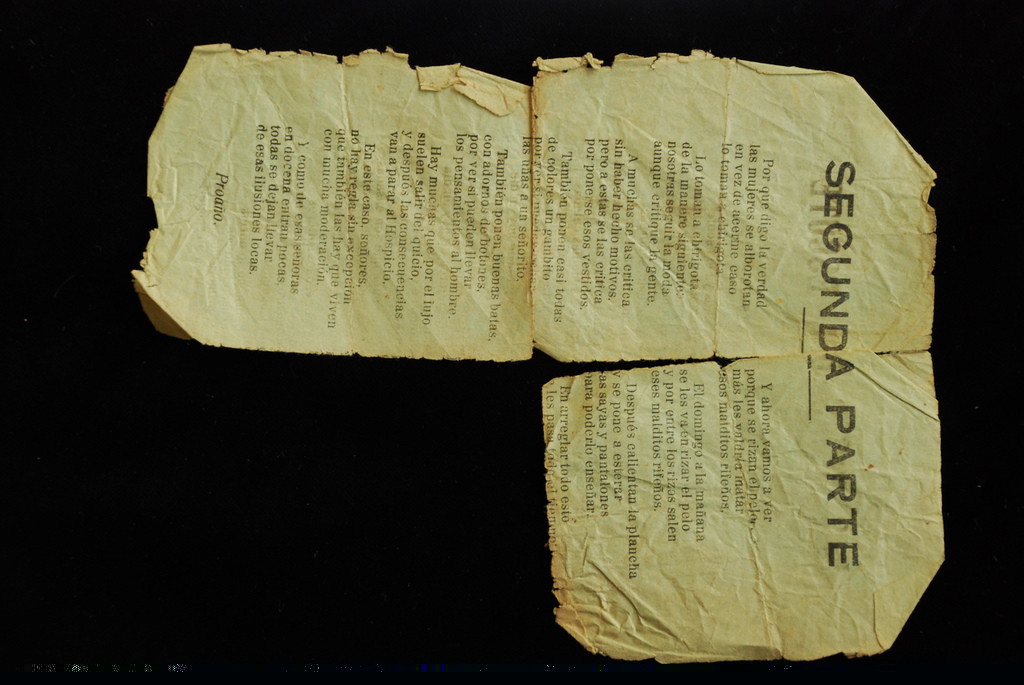 SEGUNDA PARTE
Por que digo la verdad
las mujeres se alborotan
en vez de acerme caso
lo toman a chirigota.
Lo toman a chirigota
de la manere siguiente:
nosotras seguir la moda
aunque critique la gente.
A muchas se las critica
sin haber hecho motivos,
pero a estas se las critica
por ponerse esos vestidos.
También ponen casi todas
de colores un gambito
por ver si pueden
las uñas a un señorito.
También ponen buenas batas,
con adornos de botones,
por ver si pueden llevar
los pensamientos al hombre.
Hay muchas que por el lujo
suelen salir del quicio,
y después las consecuencias
van a parar al Hospicio.
En este caso, señores,
no hay regla sin excepción
que también las hay que viven
con mucha moderación.
Y como de esas señoras
en docena entran pocas,
todas se dejan llevar
de esas ilusiones locas.
Proaño.
Y ahora vamos a ver
porque se rizan el pelo
más les valdría matar
esos malditos rifeños.
El domingo a la mañana
se les va en rizar el pelo
y por entre los rizos salen
eses malditos rifeños.
Después calientan la plancha
y se pone a esterar
as sayas y pantalones
para poderlo enseñar.
En arreglar todo esto
les pasa todo el tiempo